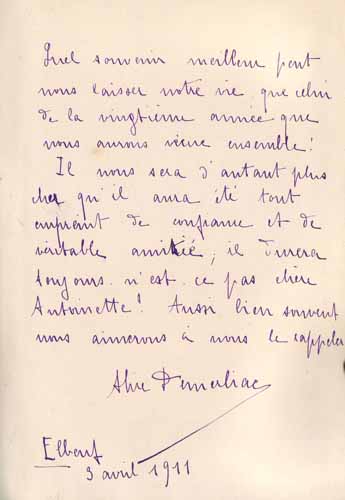 Quel souvenir meilleur peut
nous laisser notre vie que celui
de la vingtième année que
nous aurons vécue ensemble!
Il nous sera d'autant plus
cher qu'il aura été tout
empreint de confiance et de
véritable amitié; il durera
toujours n'est-ce pas chère
Antoinette! Aussi bien souvent
nous aimerons à nous le rappeler
Elbeuf
3 avril 1911